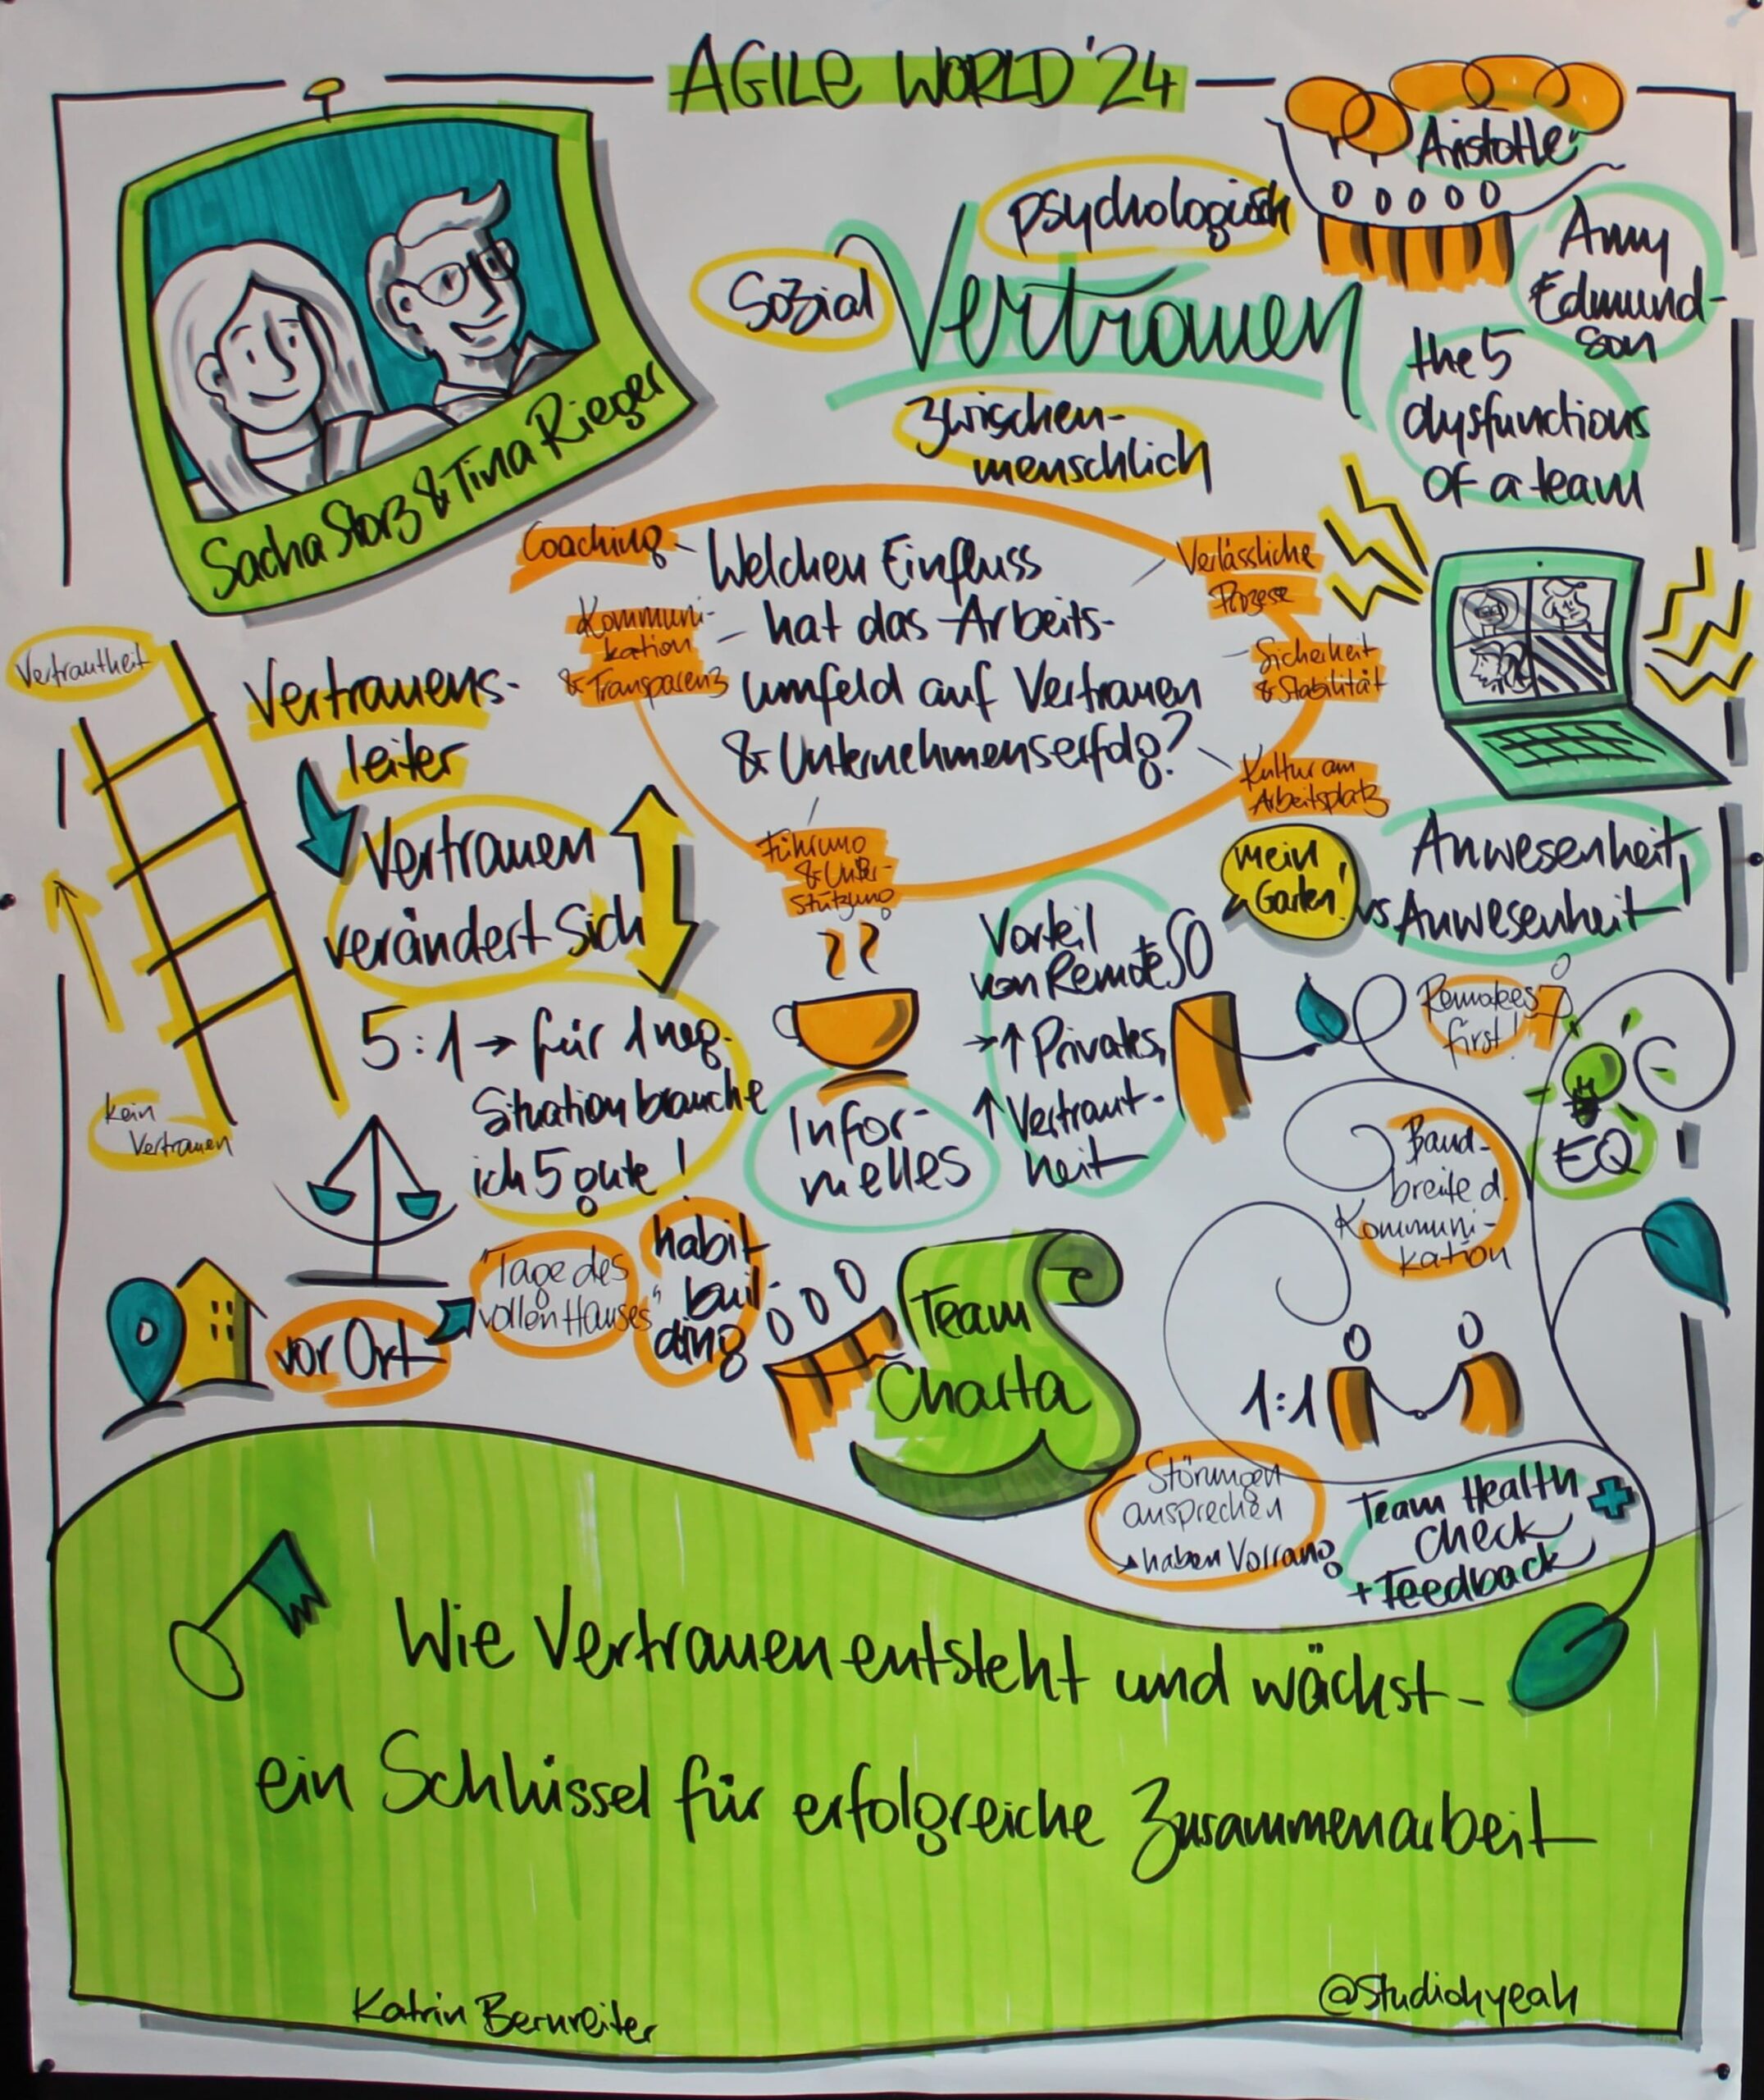 AGILE WORLD '24
Sacha Storz & Tina Rieger
Aristotle
psychologisch
Sozial
Vertrauen
zwischen-
menschlich
Amy
Edmund-
son
the 5
dysfunctions
of a team
Coaching
Kommuni-
kation
& Transparenz
Welchen Einfluss
hat das Arbeits-
umfeld auf Vertrauen
& Unternehmenserfolg?
Verlässliche
Prozese
Sicherheit
& Stabilität
Kultur am
Arbeitsplatz
Führung
& Unter-
stützung
Vertrautheit
Vertrauens-
leiter
Vertrauen
verändert sich
kein
Vertrauen
5:1 → für 1 neg.
Situation brauche
ich 5 gute!
Infor-
melles
Vorteil
von Remote
→↑ Privates,
↑ Vertraut-
heit
mein
Garten!
Anwesenheit,
vs Anwesenheit
Remotees
first!
EQ
Band-
breite d.
Kommuni-
kation
vor Ort
"Tage des
vollen Hauses"
habit
buil-
ding
Team
Charta
1:1
Störungen
ansprechen
haben Vorrang
Team Health
check
+ Feedback
Wie Vertrauen entsteht und wächst -
ein Schlüssel für erfolgreiche Zusammenarbeit
Katrin Bernreiter
@studiohyeah